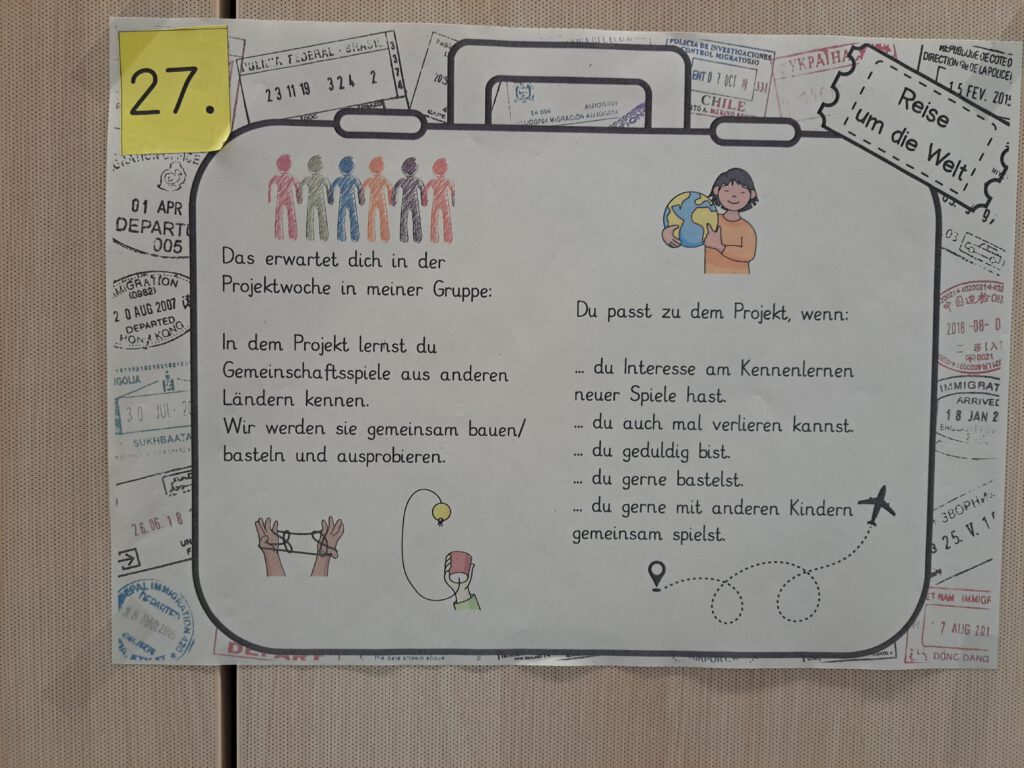 27.
POLICIA FEDERAL - BRASIL
23 11 19 324 2
POLICIA DE INVESTIGACIONES
CONTROL MIGRATORIO
CHILE
УКРАЇНА
Reise
um die Welt
15 FEV. 201
01 APR
DEPART
005
IMMIGRATION
(0982)
20 AUG 2007
DEPARTED
HONG KONG
30 JUL
SUKHBAATA
26.06.18
Das erwartet dich in der
Projektwoche in meiner Gruppe:
In dem Projekt lernst du
Gemeinschaftsspiele aus anderen
Ländern kennen.
Wir werden sie gemeinsam bauen/
basteln und ausprobieren.
Du passt zu dem Projekt, wenn:
... du Interesse am Kennenlernen
neuer Spiele hast.
... du auch mal verlieren kannst.
... du geduldig bist.
... du gerne bastelst.
... du gerne mit anderen Kindern
gemeinsam spielst.
2018-08-0
IMMIGRAT
ARRIVED
18 JAN 2
25. V. 1
7 AUG 201
DONG DANG